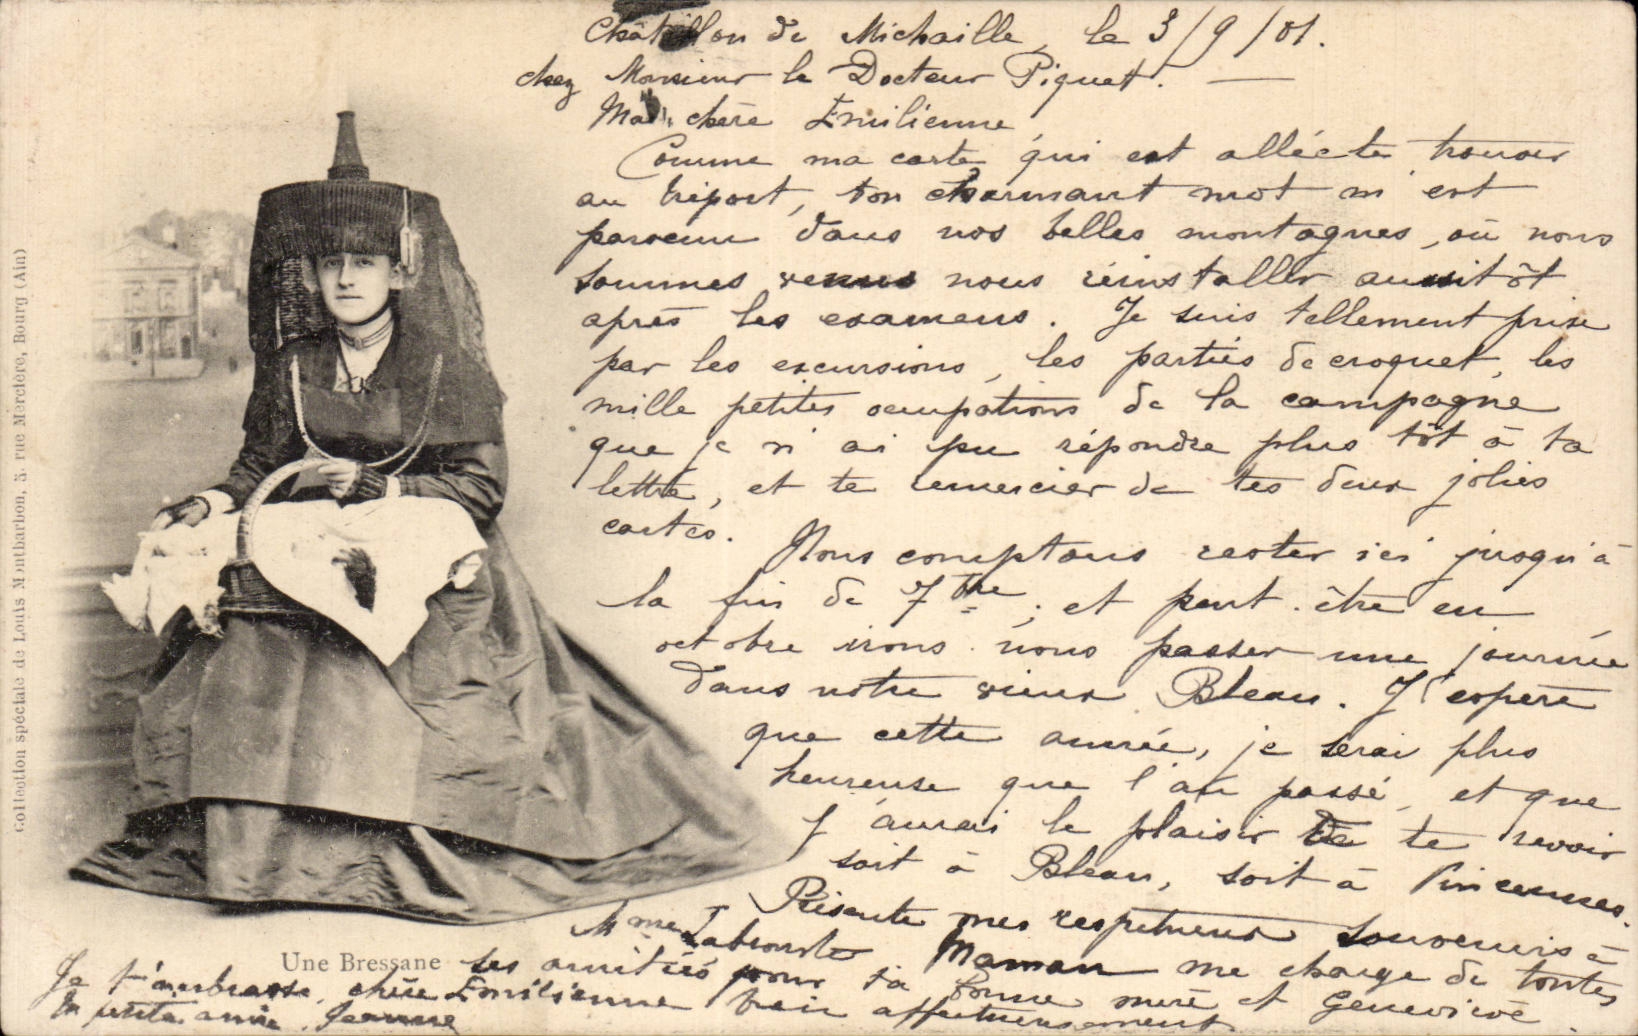 Châtillon de Michaille, le 3/9/01.
chez Monsieur le Docteur Piquet. —
Ma chère Emilienne,
Comme ma carte qui est allée te trouver
au Tréport, ton charmant mot m'est
parvenu dans nos belles montagnes, où nous
sommes venus nous réinstaller aussitôt
après les examens. Je suis tellement prise
par les excursions, les parties de croquet, les
mille petites occupations de la campagne
que je n'ai pu répondre plus tôt à ta
lettre, et te remercier de tes deux jolies
cartes.
Nous comptons rester ici jusqu'à
la fin de 7bre, et peut-être en
octobre irons nous passer une journée
dans notre vieux Bleau. J'espère
que cette année, je serai plus
heureuse que l'an passé, et que
j'aurai le plaisir de te revoir
soit à Bleau, soit à Vincennes.
Présente mes respectueux souvenirs à
Mme Maman me charge de toutes
ses amitiés pour ta bonne mère et Geneviève
Je t'embrasse, chère Emilienne bien affectueusement
Ta petite amie Jeanne
Une Bressane
Collection spéciale de Louis Montbarbon, 5, rue Mercière, Bourg (Ain)